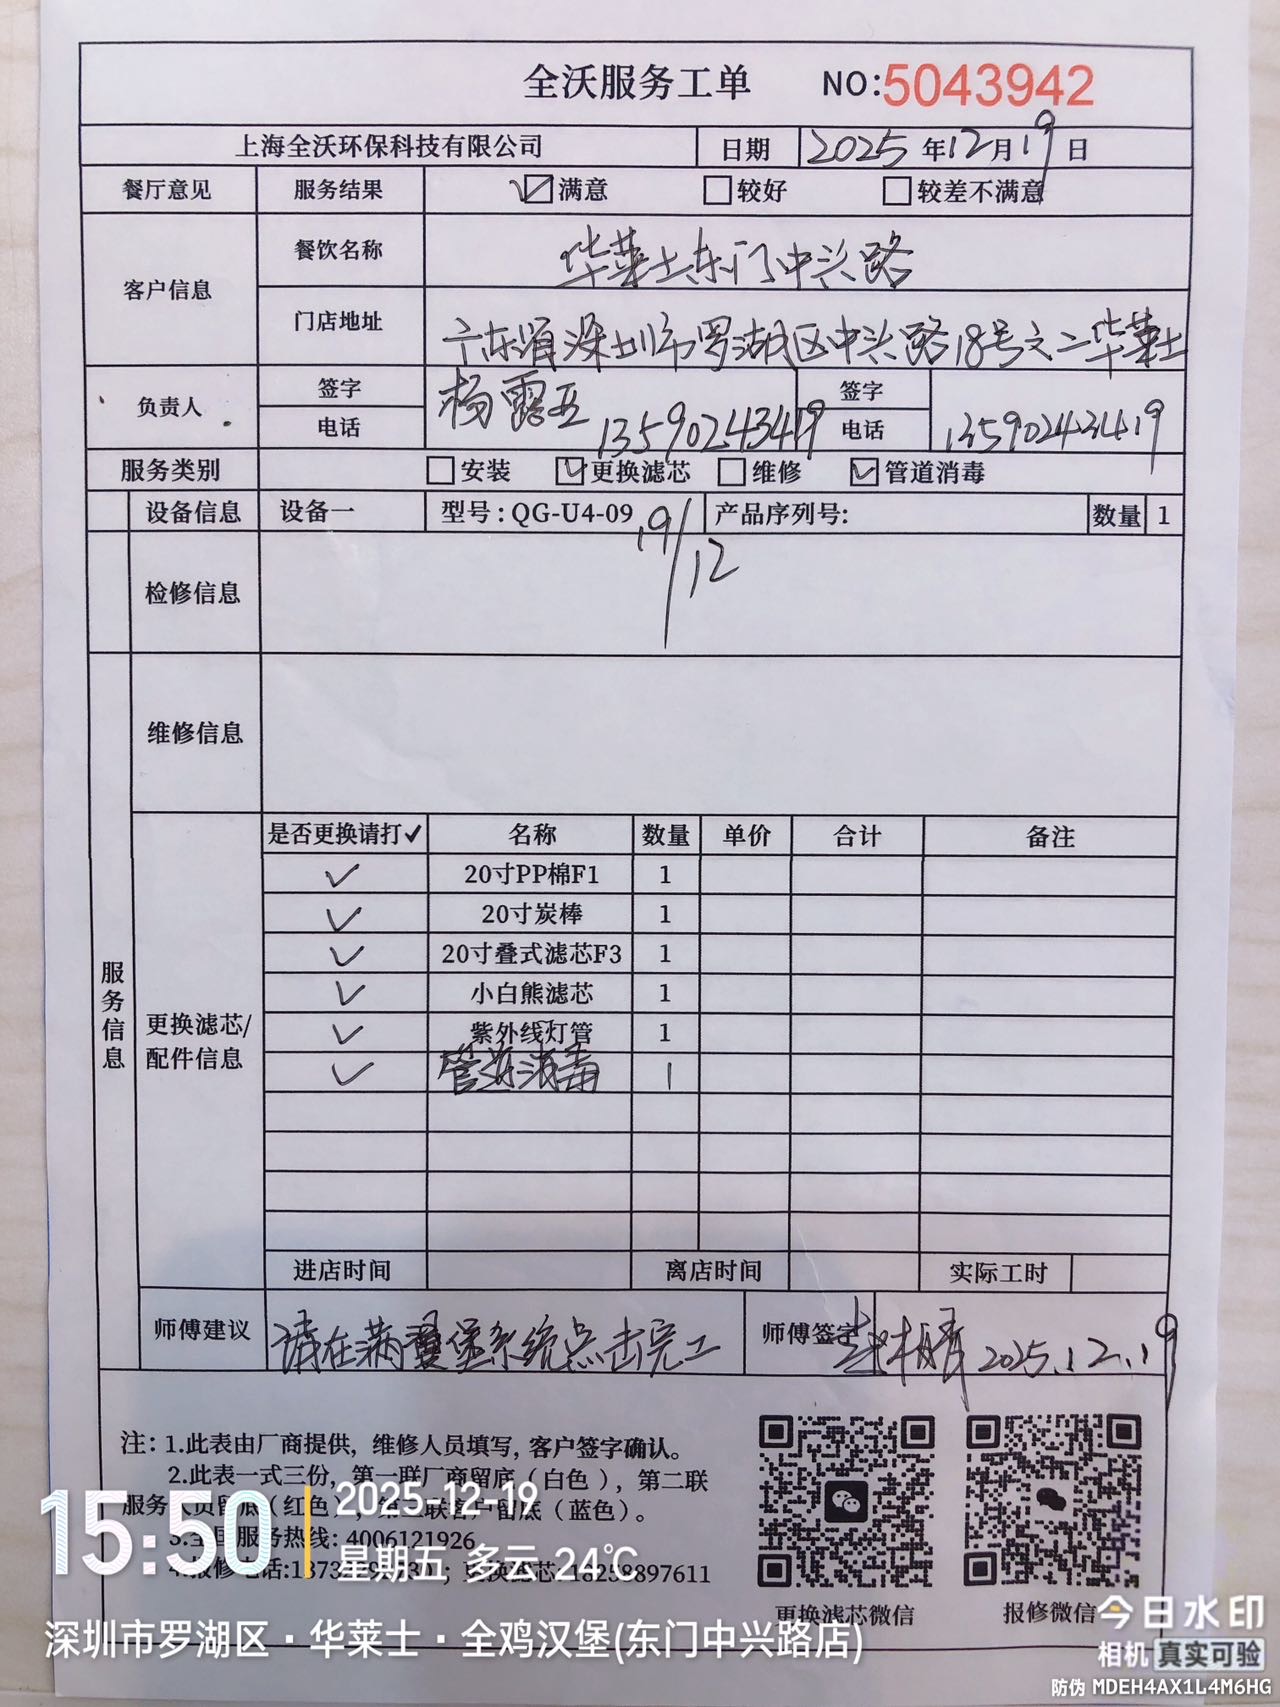 全沃服务工单 NO:5043942
上海全沃环保科技有限公司 日期 2025年12月19日
餐厅意见 服务结果 满意 较好 较差不满意
客户信息 餐饮名称 华莱士东门中兴路
门店地址 广东省深圳市罗湖区中兴路18号文二华莱士
负责人 签字 杨露 签字
电话 13590243419 电话 13590243419
服务类别 安装 更换滤芯 维修 管道消毒
设备信息 设备一 型号：QG-U4-09 产品序列号： 数量 1
19/12
检修信息
维修信息
服务信息
更换滤芯/配件信息
是否更换请打✓ 名称 数量 单价 合计 备注
✓ 20寸PP棉F1 1
✓ 20寸炭棒 1
✓ 20寸叠式滤芯F3 1
✓ 小白熊滤芯 1
✓ 紫外线灯管 1
✓ 管道消毒 1
进店时间 离店时间 实际工时
师傅建议 请在满曼堡系统点击完工 师傅签字 2025.12.19
注：1.此表由厂商提供，维修人员填写，客户签字确认。
2.此表一式三份，第一联厂商留底（白色），第二联
服务人员留底（红色），第三联客户留底（蓝色）。
3.全国服务热线：4006121926
4.报修电话:187 ；更换滤芯:18258897611
更换滤芯微信 报修微信
15:50 2025-12-19
星期五 多云 24℃
深圳市罗湖区·华莱士·全鸡汉堡(东门中兴路店)
今日水印
相机 真实可验
防伪 MDEH4AX1L4M6HG